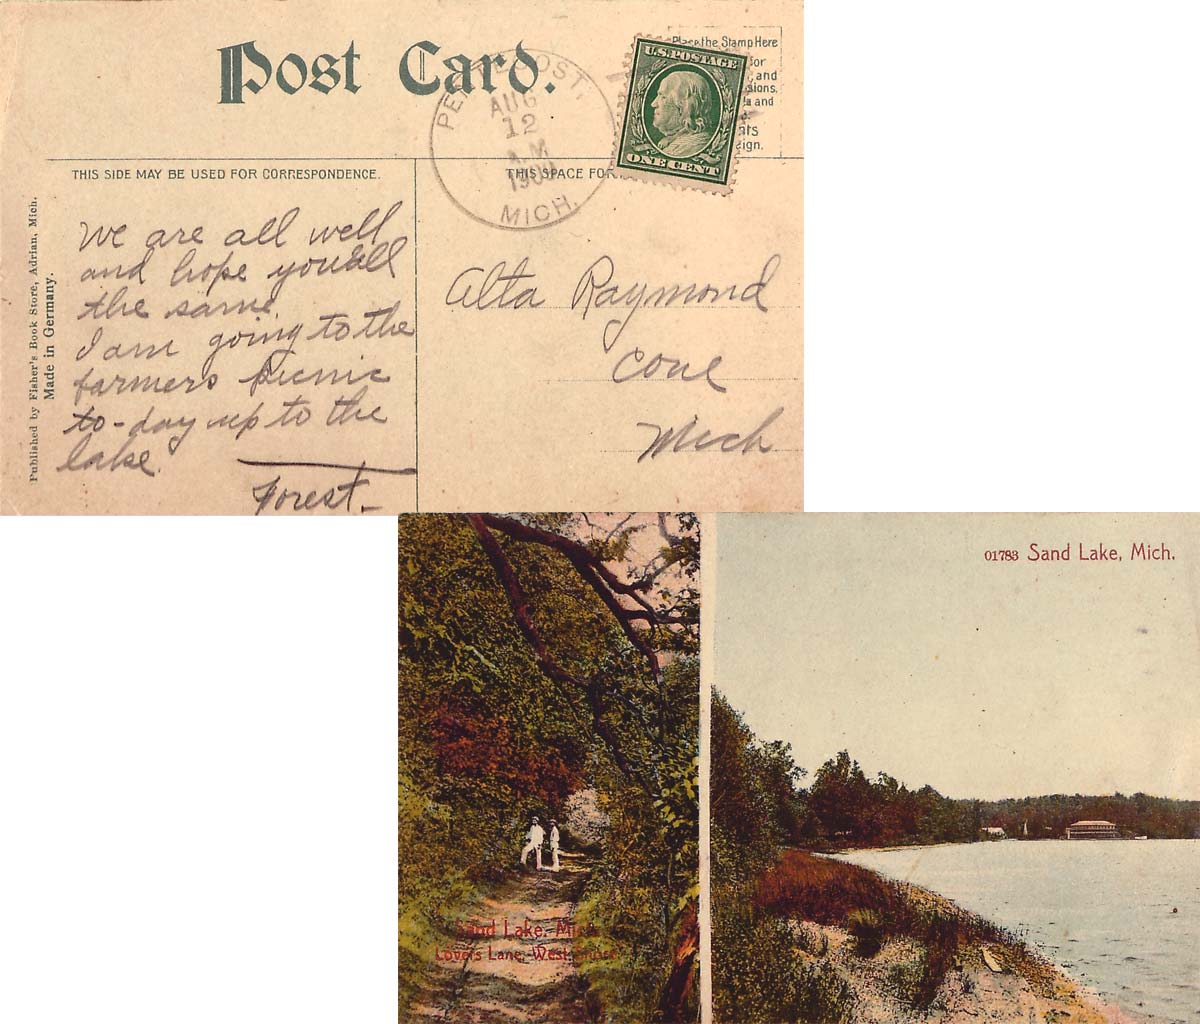 Post Card.
Place the Stamp Here
for
and
sions.
and
nts
eign.
U.S. POSTAGE
ONE CENT
AUG
12
A.M
MICH.
THIS SIDE MAY BE USED FOR CORRESPONDENCE.
THIS SPACE FOR
Published by Fisher's Book Store, Adrian, Mich.
Made in Germany.
We are all well
and hope you all
the same.
I am going to the
farmers picnic
to-day up to the
lake.
Forest
Alta Raymond
Cone
Mich
01783 Sand Lake, Mich.
Sand Lake, Mich.
Lovers Lane, West